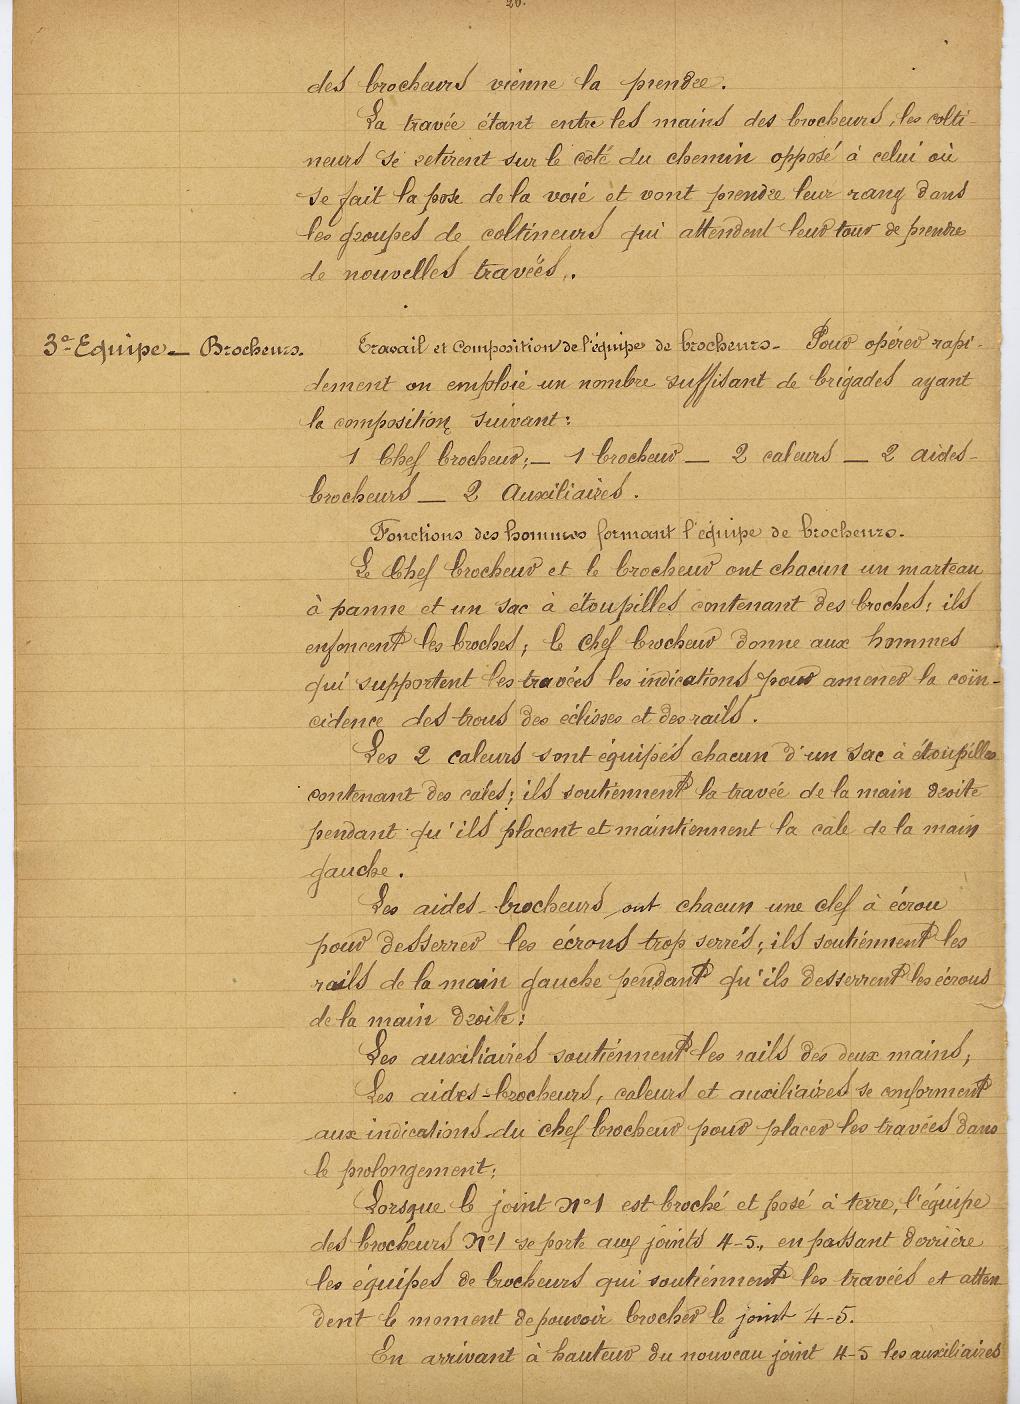 20.
des brocheurs vienne la prendre.
La travée étant entre les mains des brocheurs, les colti-
neurs se retirent sur le coté du chemin opposé à celui où
se fait la pose de la voie et vont prendre leur rang dans
les groupes de coltineurs qui attendent leur tour de prendre
de nouvelles travées.
3e Equipe _ Brocheurs.
Travail et composition de l'équipe de brocheurs - Pour opérer rapi-
dement on emploie un nombre suffisant de brigades ayant
la composition suivant:
1 Chef brocheur; _ 1 brocheur _ 2 caleurs _ 2 aides-
brocheurs _ 2 Auxiliaires.
Fonctions des hommes formant l'équipe de brocheurs.
Le Chef brocheur et le brocheur ont chacun un marteau
à panne et un sac à étoupilles contenant des broches; ils
enfoncent les broches; le chef brocheur donne aux hommes
qui supportent les travées les indications pour amener la coïn-
cidence des trous des éclisses et des rails.
Les 2 caleurs sont équipés chacun d'un sac à étoupilles
contenant des cales; ils soutiennent la travée de la main droite
pendant qu'ils placent et maintiennent la cale de la main
gauche.
Les aides-brocheurs ont chacun une clef à écrou
pour desserrer les écrous trop serrés; ils soutiennent les
rails de la main gauche pendant qu'ils desserrent les écrous
de la main droite;
Les auxiliaires soutiennent les rails des deux mains;
Les aides-brocheurs, caleurs et auxiliaires se conforment
aux indications du chef brocheur pour placer les travées dans
le prolongement;
Lorsque le joint No 1 est broché et posé à terre, l'équipe
des brocheurs No 1 se porte aux joints 4-5., en passant derrière
les équipes de brocheurs qui soutiennent les travées et atten
dent le moment de pouvoir brocher le joint 4-5.
En arrivant à hauteur du nouveau joint 4-5 les auxiliaires